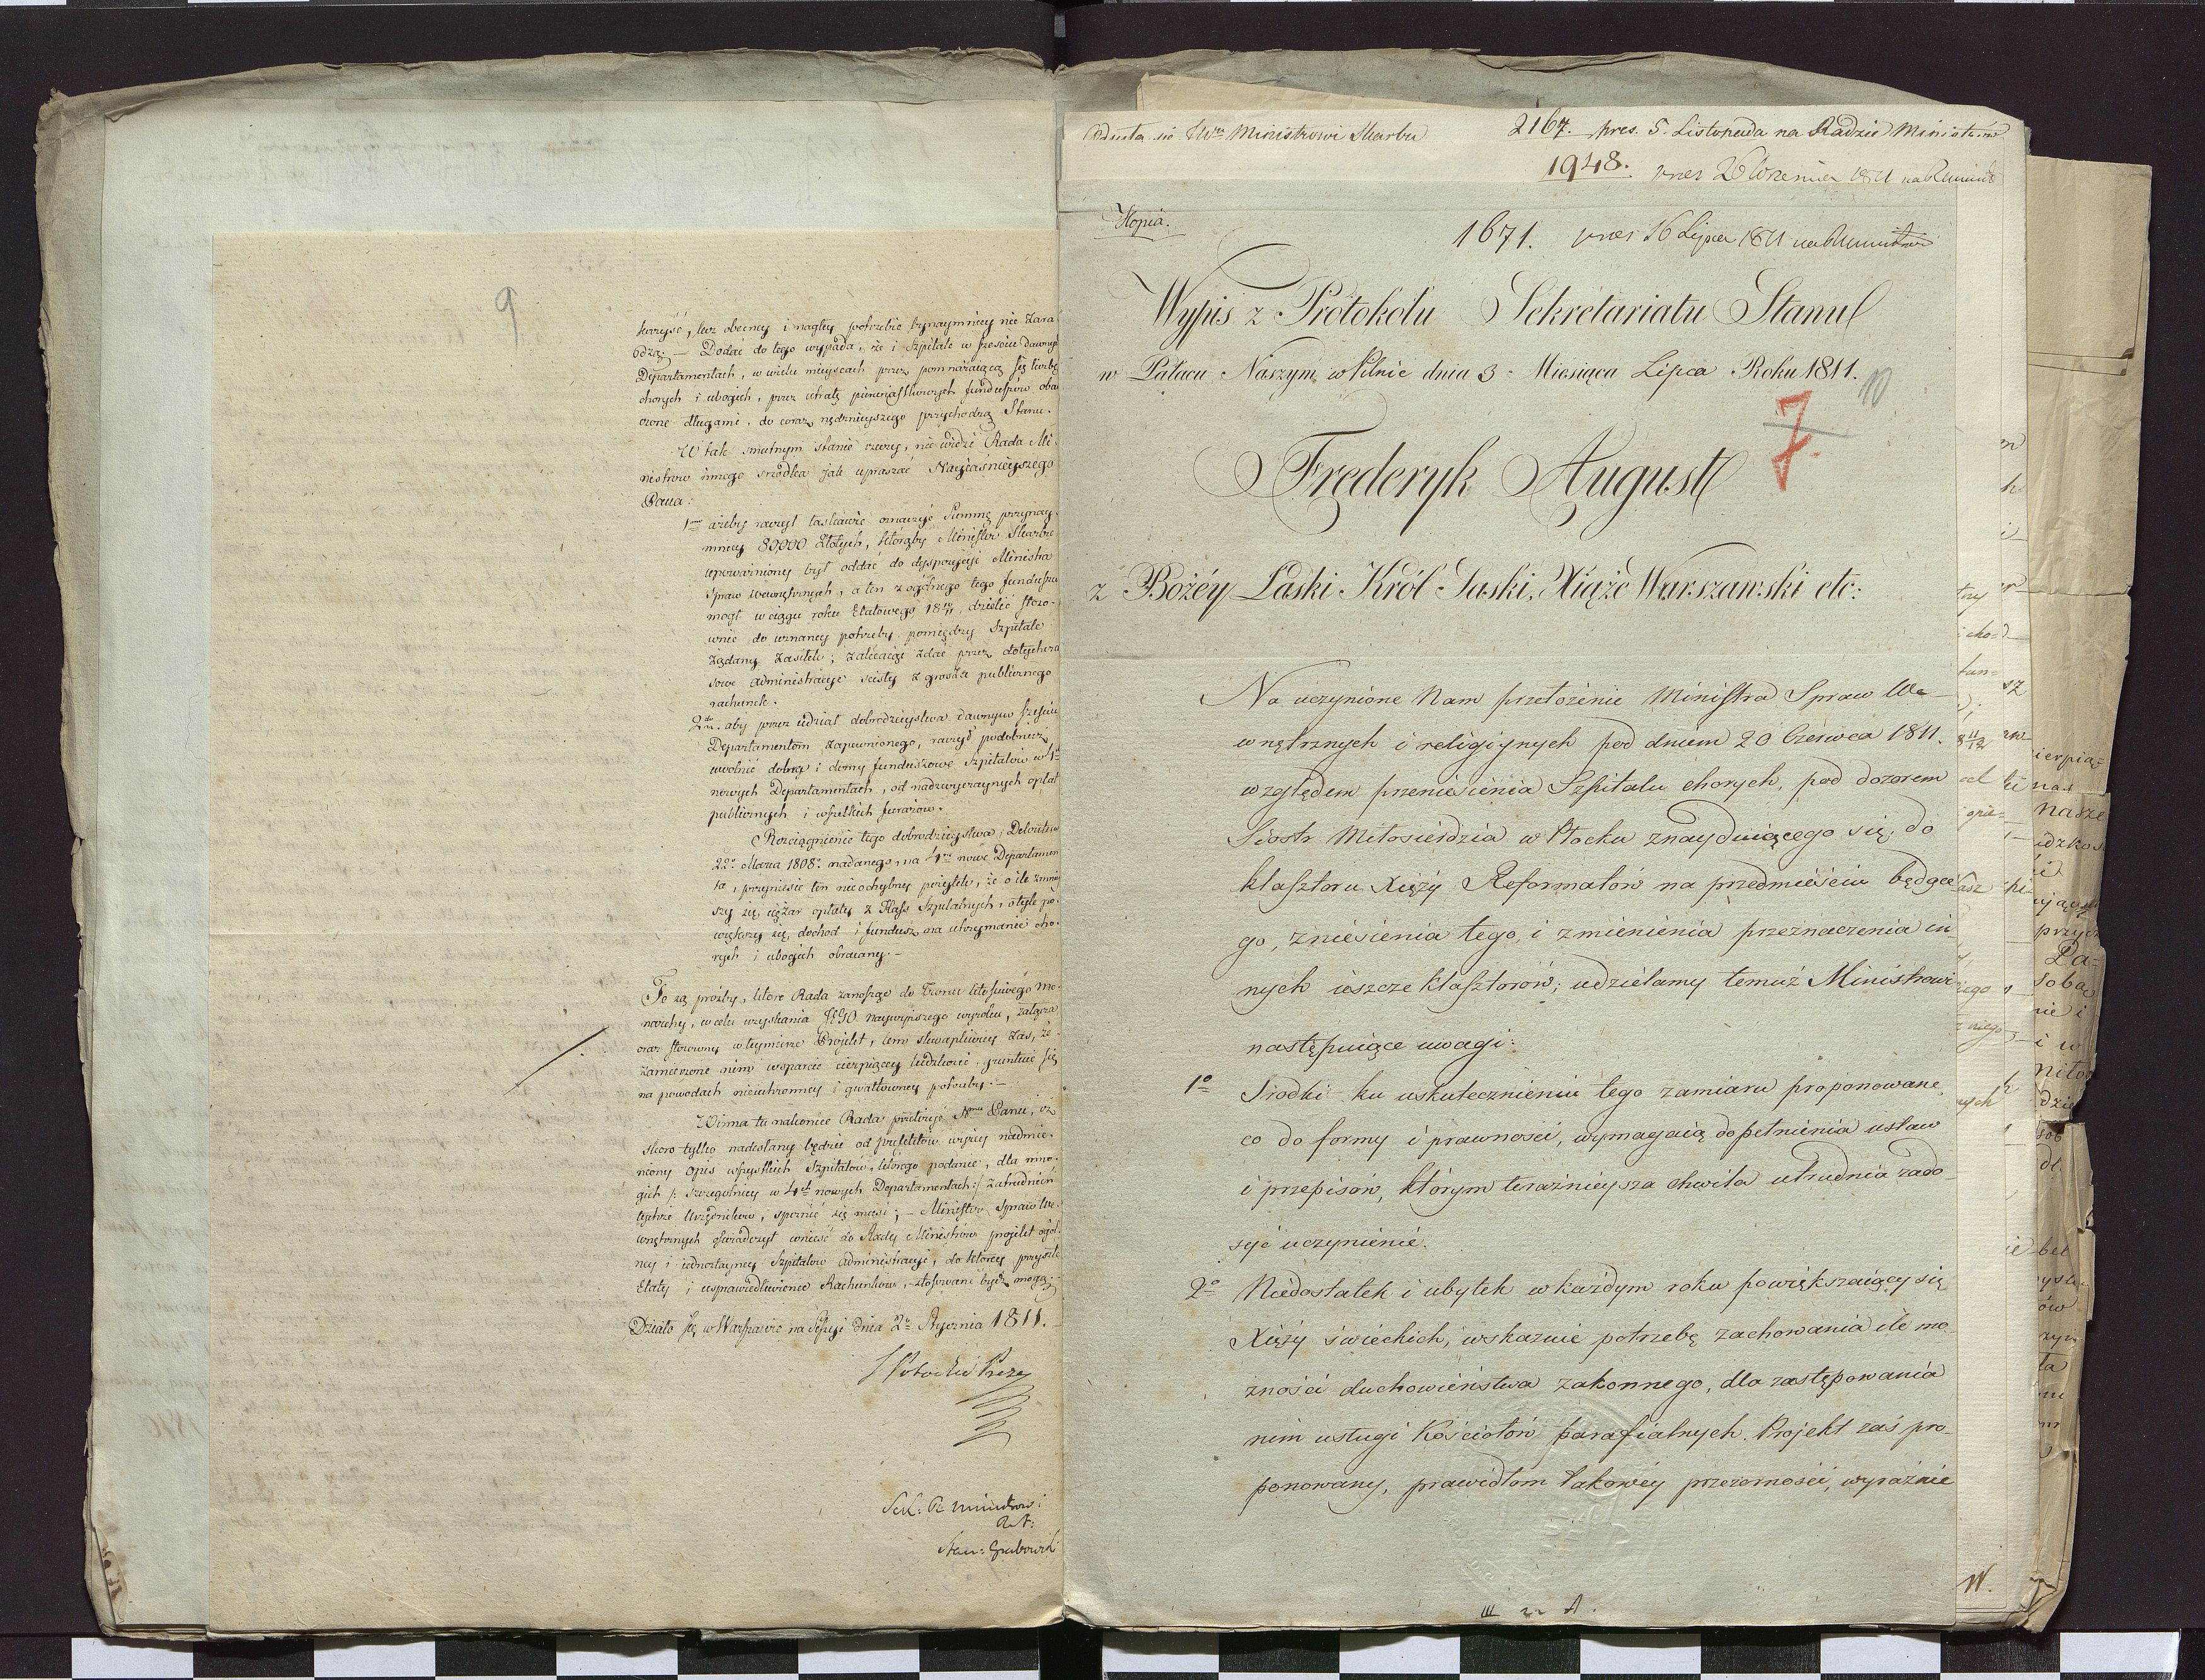 9
korzyść, lecz obecney i nagłey potrzebie bynaymniey nie zara
dzą; — Dodać do tego wypada, że i Szpitale w sześciu dawnych
Departamentach, w wielu mieyscach przez pomnażaiącą się liczbę
chorych i ubogich, przez utratę funduszów
długami, do coraz nędznieyszego przychodzą Stanu.
W tak smutnym stanie rzeczy, nie widzi Rada Mi-
nistrow innego srzodka jak upraszać Nayiaśnieyszego
Pana:
1mo ażeby raczył łaskawie oznaczyć Summę przynay-
mniey 80000 Złotych, którąby Minister Skarbu
upoważniony był oddać do dyspozycyi Ministra
Spraw Wewnętrznych, a ten z ogólnego tego funduszu
mogł w ciągu roku Etatowego 18 dzielić stoso-
wnie do uznaney potrzeby pomiędzy Szpitale
żądany zasiłek; zalecaiąc zdać przez dotychcza
sowe Administracye scisły z grosza publicznego
rachunek.
2do aby przez udział dobrodzieystwa dawnym sześciu
Departamentom zapewnionego, raczył podobnież
uwolnić dobra i domy funduszowe Szpitalów w 4ch
nowych Departamentach, od nadzwyczaynych opłat
publicznych i wszelkich furażow.
Rozciągnienie tego dobrodzieystwa, Dekretem
22o Marca 1808o nadanego, na 4ry nowe Departamen
ta, przyniesie ten niechybny pożytek, że o ile zmniey
szy się ciężar opłaty z Kass Szpitalnych, o tyle po-
większy się dochod i fundusz na utrzymanie cho-
rych i ubogich obracany. —
Te są prośby, które Rada zanosząc do Tronu litościwego Mo-
narchy, w celu uzyskania JEGO naywyższego wyroku, załącza
oraz stosowny w teymierze Projekt, tem skwapliwiey zas, że
zamierzone nim wsparcie cierpiącey ludzkości gruntuie się
na powodach nieuchronney i gwałtowney potrzeby. —
Winna tu nakoniec Rada przełożyć Panu, iż
skoro tylko nadesłany będzie od prefektów wyżey nadmie-
niony opis wszystkich Szpitalów, którego podanie, dla mno-
gich /: szczegolniey w 4ch nowych Departamentach :/ zatrudnień
tychże Urzędnikow, spoznić się musi; — Minister Spraw We-
wnętrznych oświadczył wnieść do Rady Ministrów projekt ogól-
ney i jednostayney Szpitalow administracyi, do którey przyszłe
Etaty i usprawiedliwienie Rachunkow, stosowane być mogą. —
Działo się w Warszawie na Sessyi dnia 2o Stycznia 1811. —
Potocki Prezes
Sek: R. Ministrow
Stan: Grabowski
Ministrowi Skarbu
2167. pres. 5. Listopada na Radzie Ministrów
1948. pres 26 Wrzesnia 1811
Kopia.
1671. pres 16 Lipca 1811
Wypis z Protokołu Sekretariatu Stanu
w Pałacu Naszym w Pilnic dnia 3 Miesiąca Lipca Roku 1811.
10
7.
Fręderyk August
z Bożéy Łaski Król Saski, Xiąże Warszawski etc:
Na uczynione Nam przełożenie Ministra Spraw We-
wnętrznych i religiynych pod dniem 20 Czerwca 1811.
względem przeniesienia Szpitalu chorych, pod dozorem
Siostr Miłosierdzia w Płocku znayduiącego się, do
klasztoru Xięży Reformatów na przedmieściu będące
go, zniesienia tego, i zmienienia przeznaczenia in-
nych ieszcze klasztorów; udzielamy temuż Ministrowi
następuiące uwagi:
1o Srodki ku uskutecznieniu tego zamiaru proponowane
co do formy i prawności, wymagaią dopełnienia ustaw
i przepisów, którym teraźnieysza chwila utrudnia zado-
syć uczynienie.
2o Niedostatek i ubytek w każdym roku powiększaiący się
Xięży świeckich, wskazuie potrzebę zachowania ile mo-
żności duchowieństwa zakonnego, dla zastępowania
nim usługi Kościołów parafialnych. Projekt zaś pro-
ponowany, prawidłom takowéy przezorności, wyraźnie
W.